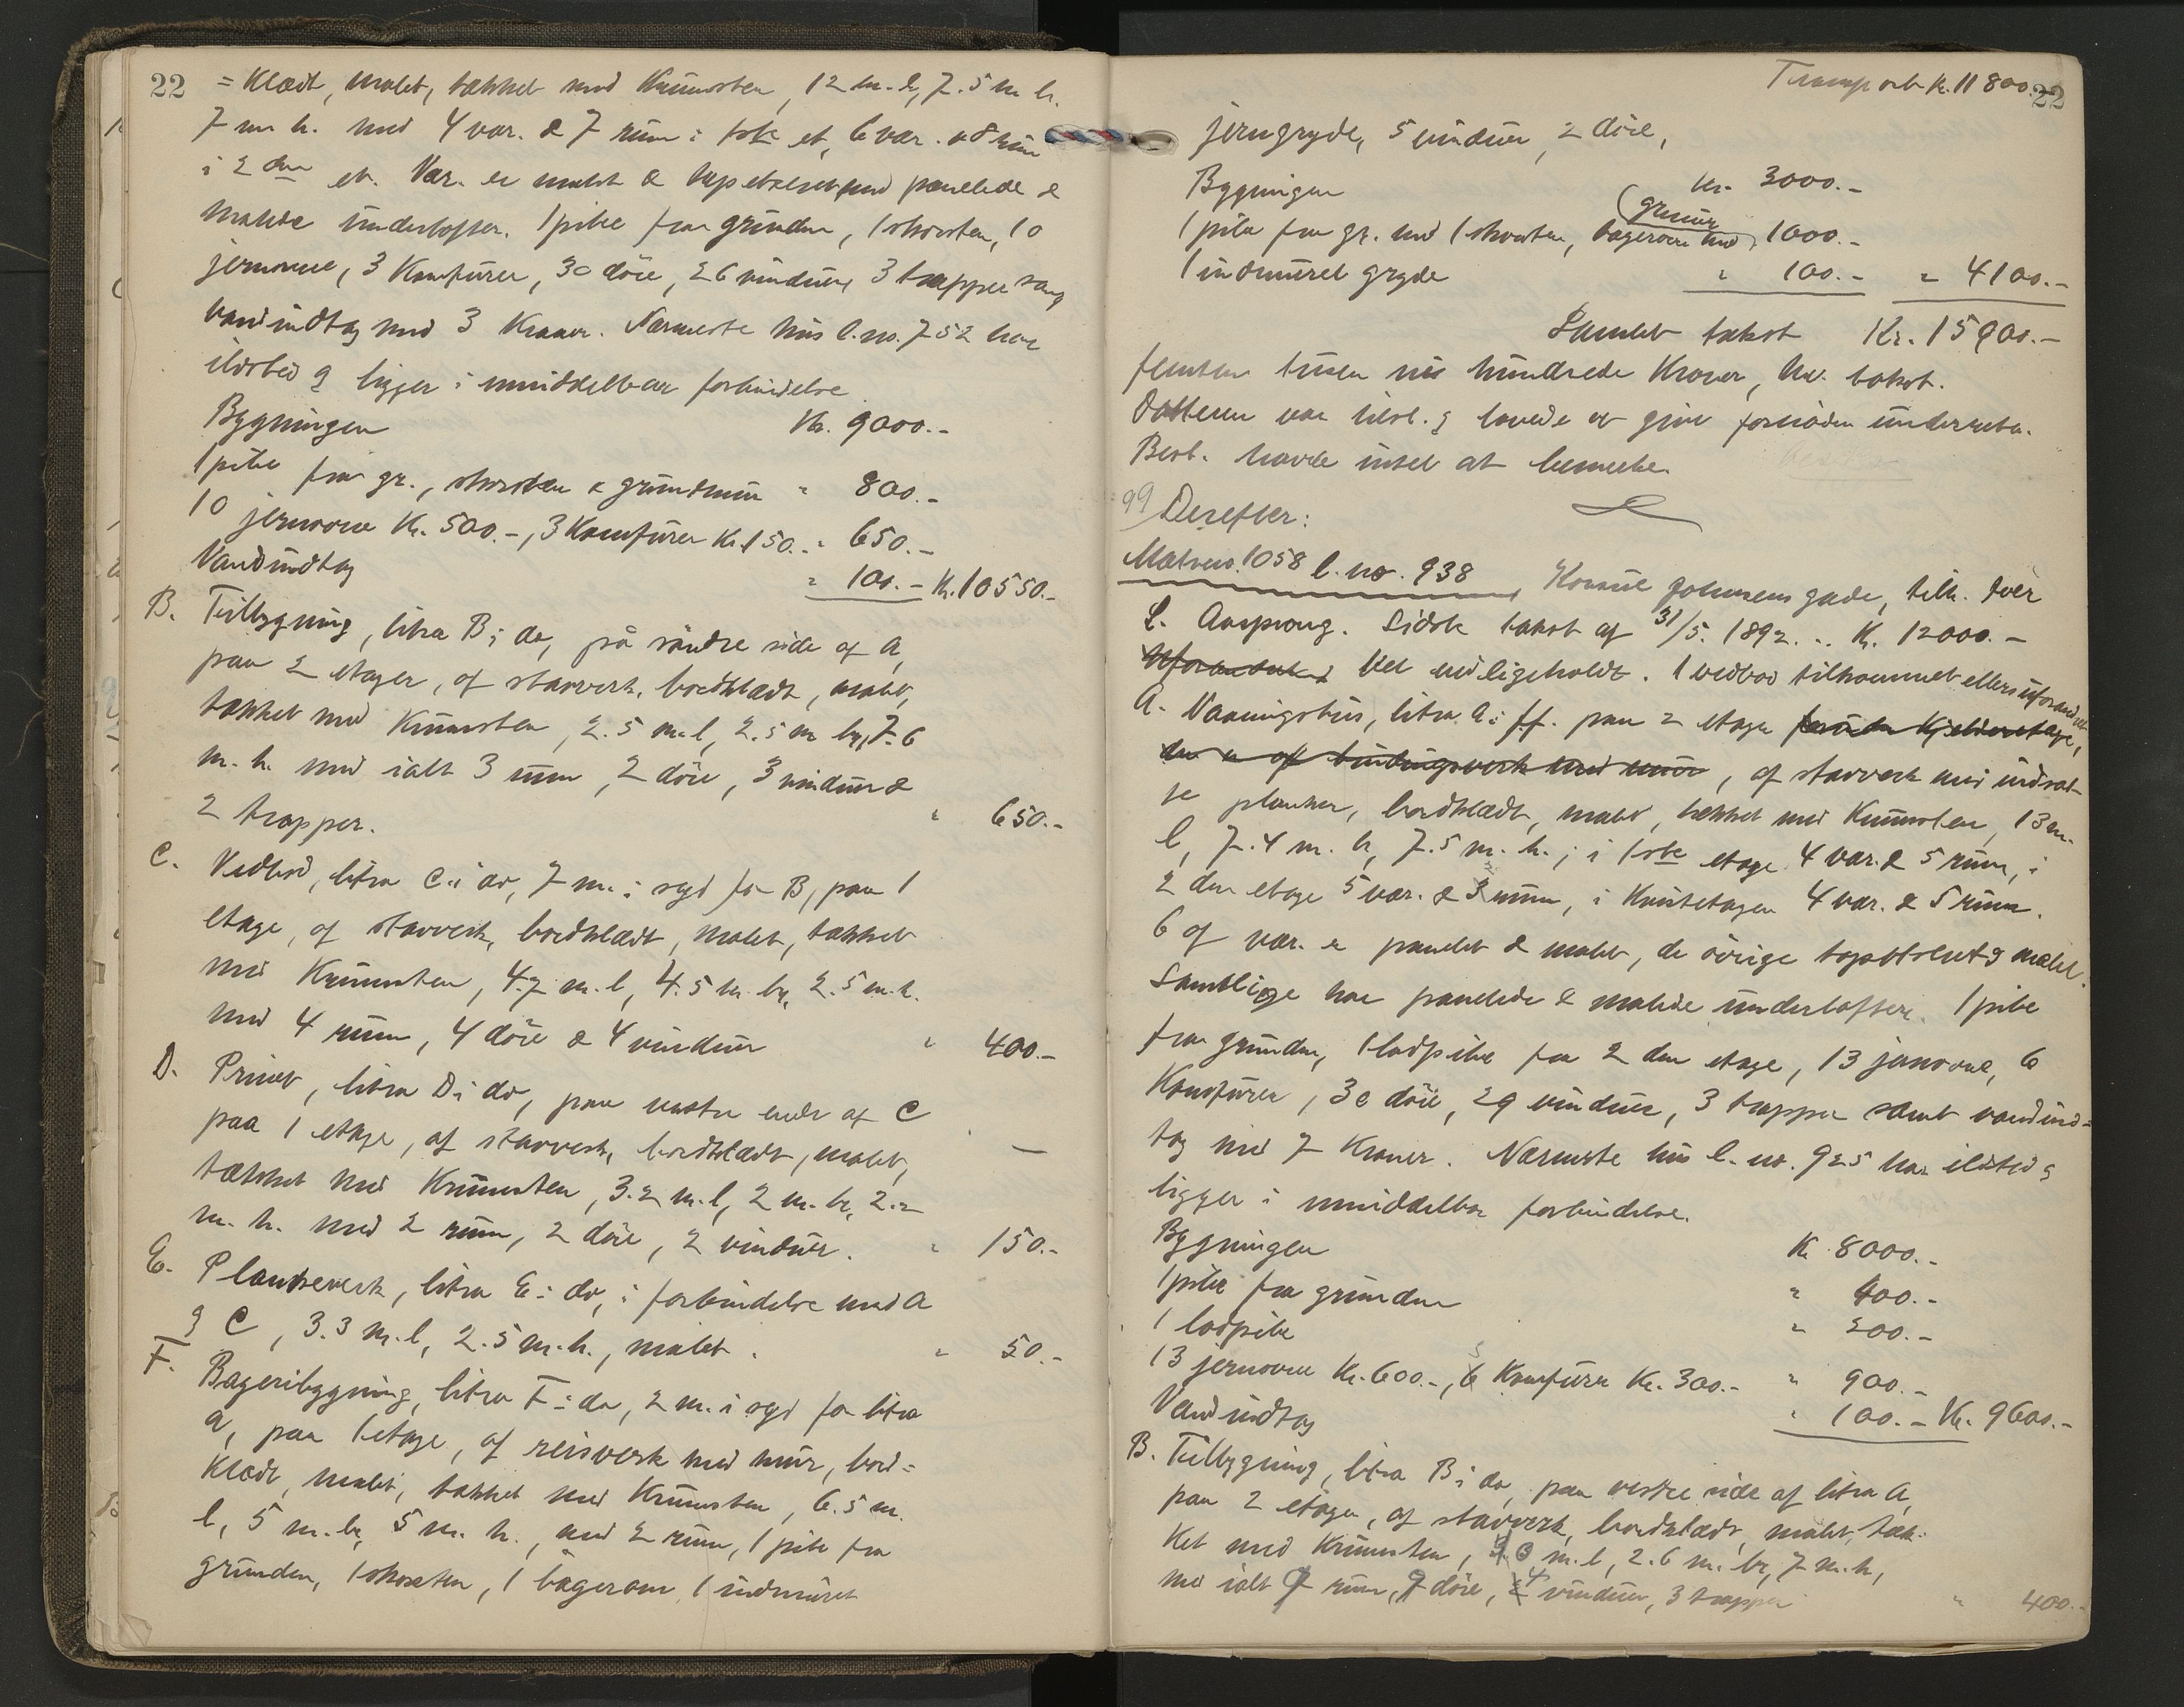 22 = klædt, malet, tækket med Krumsten, 12 m. l., 7.5 m br.
7 m h. med 4 vær. & 7 rum i 1ste et., 6 vær. & 8 rum
i 2den et. Vær. er malet & tapetseret med panelede &
malede underlofter. 1 pibe fra grunden, 1 skorsten, 10
jernovne, 3 Komfurer, 30 döre, 26 vinduer, 3 trapper samt
vandindtag med 3 Kraner. Nærmeste hus l. no. 752 har
ildsted & ligger i umiddelbar forbindelse
Bygningen Kr. 9000.-
1 pibe fra gr., skorsten & grundmur " 800.-
10 jernovne Kr. 500.-, 3 Komfurer Kr. 150.- " 650.-
Vandindtag " 100.- Kr. 10550.-
B. Tilbygning, litra B i do, på söndre side af A,
paa 2 etager, af stavverk, bordklædt, malet,
tækket med Krumsten, 2.5 m. l, 2.5 m br, 7.6
m. h. med ialt 3 rum, 2 döre, 3 vinduer &
2 trapper. " 650.-
C. Vedbod, litra C i do, 7 m. i syd for B, paa 1
etage, af stavverk, bordklædt, malet, tækket
med Krumsten, 4.7 m. l, 4.5 m. br, 2.5 m. h.
med 4 rum, 4 döre & 4 vinduer " 400.-
D. Privet, litra D i do, paa vestre ende af C
paa 1 etage, af stavverk, bordklædt, malet,
tækket med Krumsten, 3.2 m. l, 2 m. br, 2.2
m. h. med 2 rum, 2 döre, 2 vinduer. " 150.-
E. Plankeverk, litra E i do, i forbindelse med A
& C, 3.3 m. l, 2.5 m. h., malet. " 50.-
F. Bageribygning, litra F i do, 2 m. i syd for litra
A, paa 1 etage, af reisverk med mur, bord=
klædt, malet, tækket med Krumsten, 6.5 m.
l, 5 m. br, 5 m. h., med 2 rum, 1 pibe fra
grunden, 1 skorsten, 1 bagerovn, 1 indmuret
Transport Kr. 11 800.- 22
jerngryde, 5 vinduer, 2 döre,
Bygningen Kr. 3000.-
1 pibe fra gr. med 1 skorsten, bagerovn med (grmur) 1000.-
1 indmuret gryde " 100.- " 4100.-
Samlet takst Kr. 15900.-
femten tusen ni hundrede Kroner, ny takst.
Datteren var tilst. & lovede at give fornöden underretn.
Best. havde intet at bemerke.
99 Derefter:
Matr. no. 1058 l. no. 938 Konsul Johnsens gade, tilh. Iver
L. Aarsprong. Sidste takst af 31/5. 1892 .. Kr. 12000.-
Uforandret & Vel vedligeholdt. 1 vedbod tilkommet ellers uforandret
A. Vaaningshus, litra A i ff. paa 2 etager foruden Kjelderetage,
der er af bindingsverk med mur, af stavverk med indsat-
te planker, bordklædt, malet, tækket med Krumsten, 13 m.
l, 7.4 m. br, 7.5 m. h.; i 1ste etage 4 vær. & 5 rum, i
2den etage 5 vær. & 3 rum, i Kvistetagen 4 vær. & 5 rum.
6 af vær. er panelet & malet, de övrige tapetseret & malet.
Samtlige har panelede & malede underlofter. 1 pibe
fra grunden, 1 lodpibe fra 2den etage, 13 jernovne, 6
Komfurer, 30 döre, 29 vinduer, 3 trapper samt vandind=
tag med 7 Kraner. Nærmeste hus l. no. 925 har ildsted &
ligger i umiddelbar forbindelse.
Bygningen Kr. 8000.-
1 pibe fra grunden " 400.-
1 lodpibe " 200.-
13 jernovne Kr. 600.-, 6 Komfurer Kr. 300.- " 900.-
Vandindtag " 100.- Kr. 9600.-
B. Tilbygning, litra B i do, paa vestre side af litra A,
paa 2 etager, af stavverk, bordklædt, malet, tæk-
ket med Krumsten, m. l, 2.6 m. br, 7 m. h,
med ialt 9 rum, 9 döre, 4 vinduer, 3 trapper " 400.-